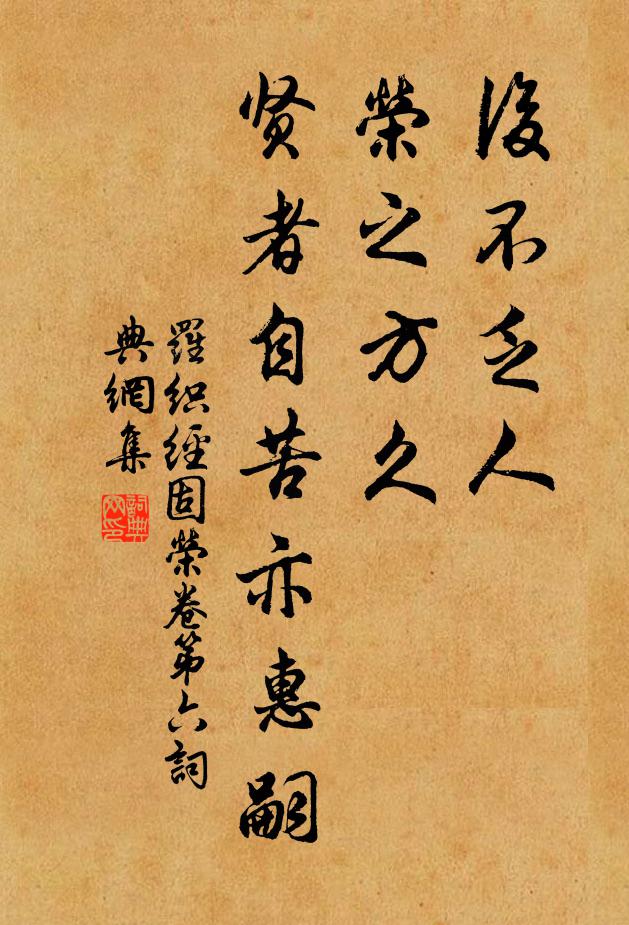 後不乏人
榮之方久
賢者自苦亦惠嗣
羅織經固榮卷第六詞
典網集
詞典
网印